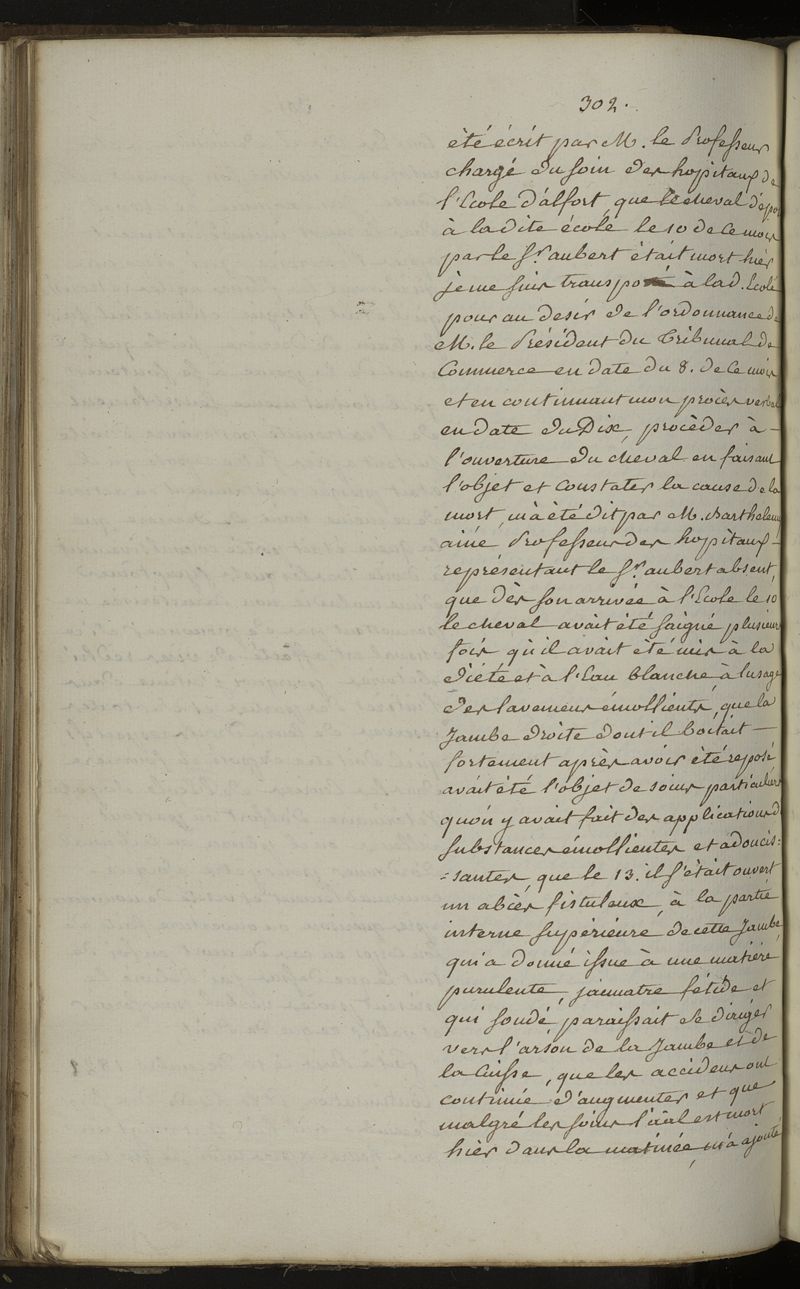 302.
été écrit par M. le Professeur
chargé du soin des hopitaux de
l'Ecole d'alfort, que le cheval dépo
à la dite école le 10 de ce mois
par le Sr. aubert était mort hièr
je me suis transporté à lad. Ecole
pour au desir de l'ordonnance de
M. le Président du Tribunal de
Commerce en date du 8. de ce mois
et en continuant mon procès verbal
en date du Dix, procèder à —
l'ouverture du cheval en faisant
l'objet et constater la cause de la
mort, m'a été dit par M. Barthelemy
ainé Professeur des hopitaux —
représentant le Sr. aubert absent,
que dès son arrivée à l'Ecole le 10
le cheval avait été saigné plusieurs
fois qu'il avait été mis à la
diéte et à l'Eau blanche, à lusage
des lavemens émollients, que la
Jambe droite dont il boitait —
fortement après avoir été reposé
avait été l'objet de soins particuliers
qu'on y avait fait des applications d
substances émollientes et adoucis=
=santes, que le 13. il s'était ouvert
un abcès fistuleux, à la partie
interne supérieure de cette Jambe
qui a donné issue à une matière
purulente, fétide et
qui sondé paraissait se diriger
vers l' de la Jambe et de
la Cuisse, que les accidens ont
continué d'augmenter et que
malgré les soins l'aal est mort
hièr dans la matinée, m'a ajouté